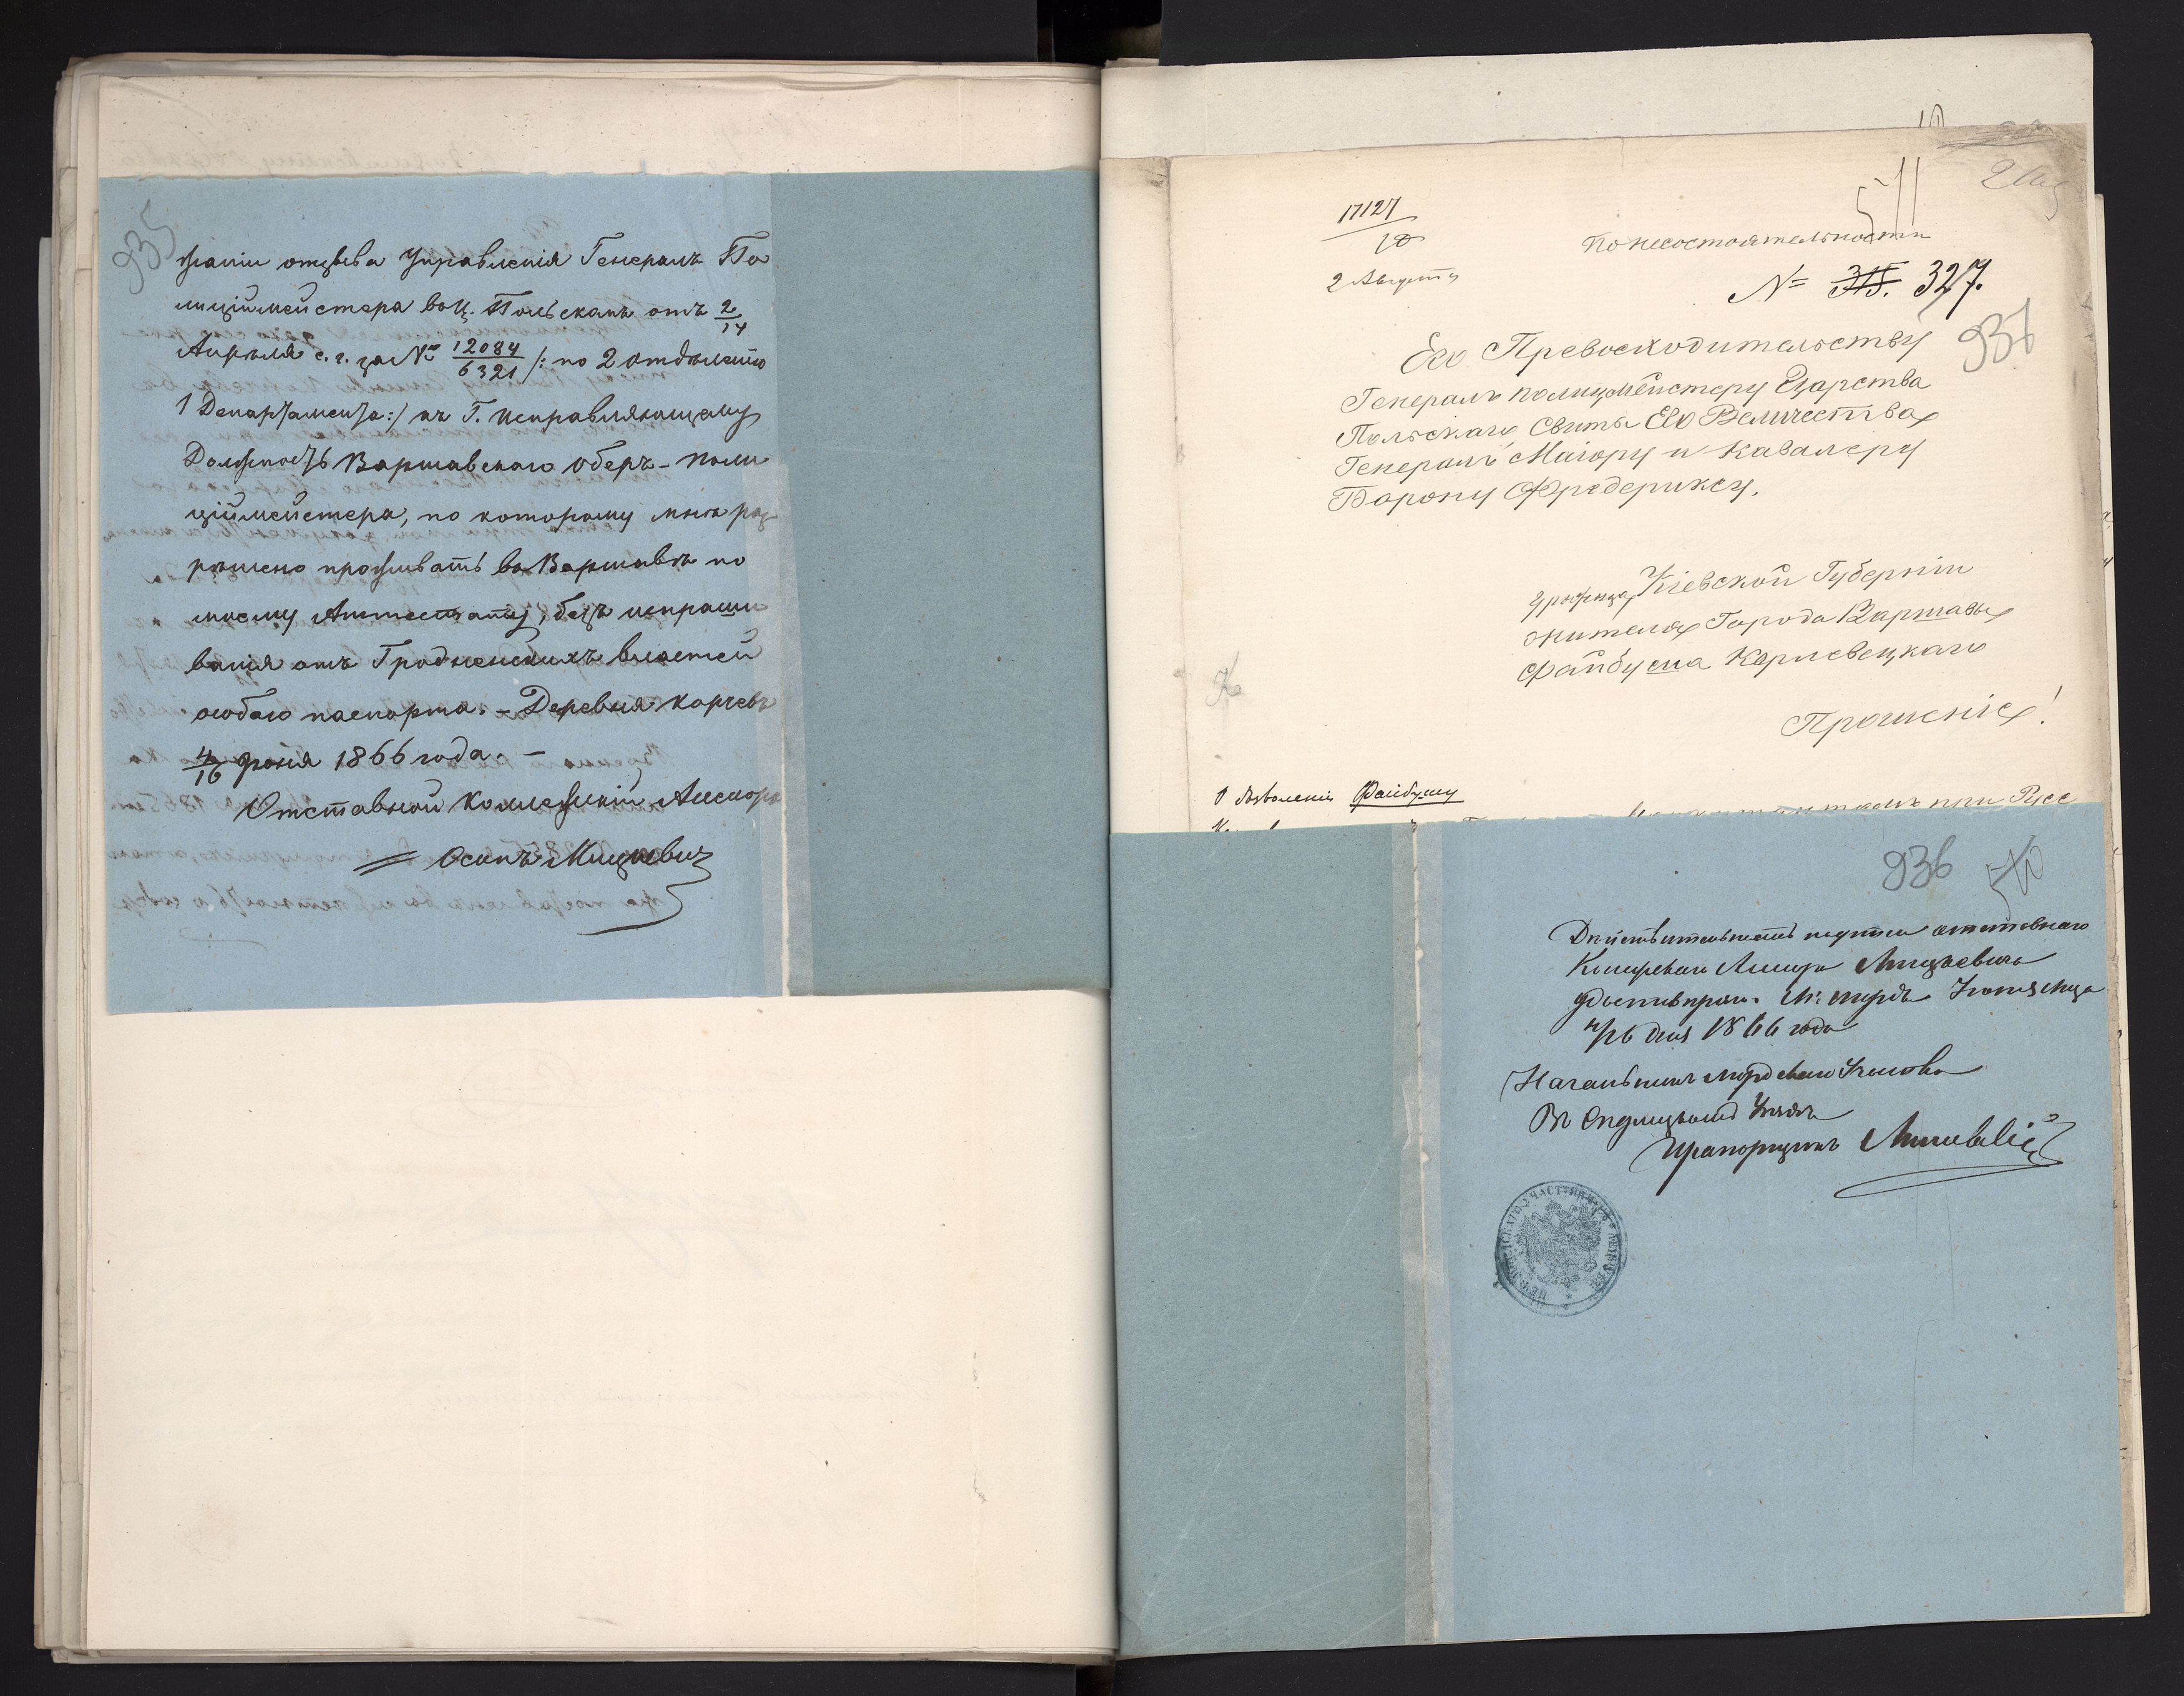 935
жаніи отзыва Управленія Генералъ По
лиціймейстера въ Ц. Польскомъ отъ 2/14
Апрѣля с. г. за № 12084/6321 /: по 2 отдѣленію
1 Департамента :/ къ Г. Исправляющему
Должность Варшавскаго Оберъ-Поли
ціймейстера, по которому мнѣ раз
рѣшено проживать въ Варшавѣ по
моему Аттестату, безъ испраши
ванія отъ Гродненскихъ властей
особаго паспорта. – Деревня Корчевъ
4/16 Іюня 1866 года. –
Отставной Коллежскій Асессоръ
Осипъ Мицкевич
17127
2 Августа
511
По несостоятельности
№ 315. 327.
937
Его Превосходительству
Генералъ полицмейстеру Царства
Польскаго, Свиты Его Величества
Генералъ Маіору и Кавалеру
Барону Фредериксу.
уроженца Кіевской Губерніи
жителя Города Варшавы
Файбуша Карлевецкаго
Прошеніе!
О дозволеніи Файбушу
936
510
Дѣйствительность подписи отставнаго
Коллежскаго Ассесора Мицкевича
4/16 дня 1866 года
Начальникъ Участка
Въ Сѣдлецкомъ Уѣздѣ
Прапорщикъ